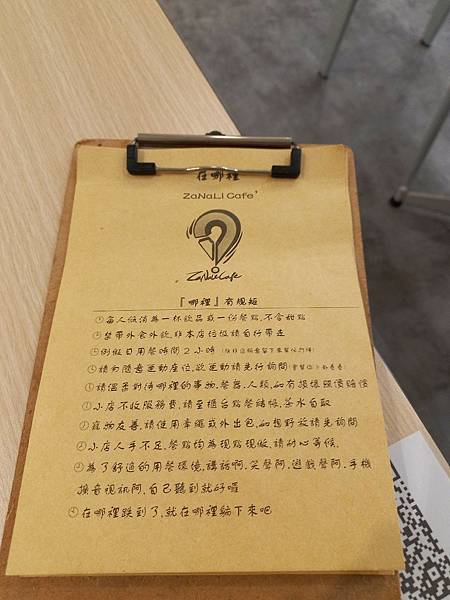 在哪裡
ZaNaLi Cafe'
ZaNaLi Cafe
『哪裡』有規矩
每人低消為一杯飲品或一份餐點,不含甜點
禁帶外食外飲,非本店垃圾請自行帶走
例假日用餐時間2小時
請勿隨意移動座位,欲移動請先行詢問
請溫柔對待哪裡的事物,餐器,人類,如有損壞照價賠償
小店不收服務費,請至櫃台點餐結帳,茶水自取
寵物友善,請使用牽繩或外出包,如想野放請先詢問
小店人手不足,餐點均為現點現做,請耐心等候.
為了舒適的用餐環境,講話啊.笑聲阿.遊戲聲阿.手機
擴音視訊阿,自己聽到就好囉
在哪裡跌到了,就在哪裡躺下來吧